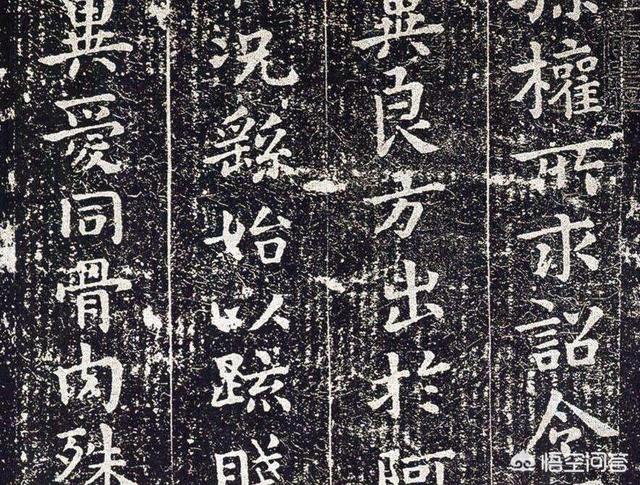 孫權所求詔令
冀良方出於阿
況繇始以疏賤
異愛同骨肉殊
悟空问答